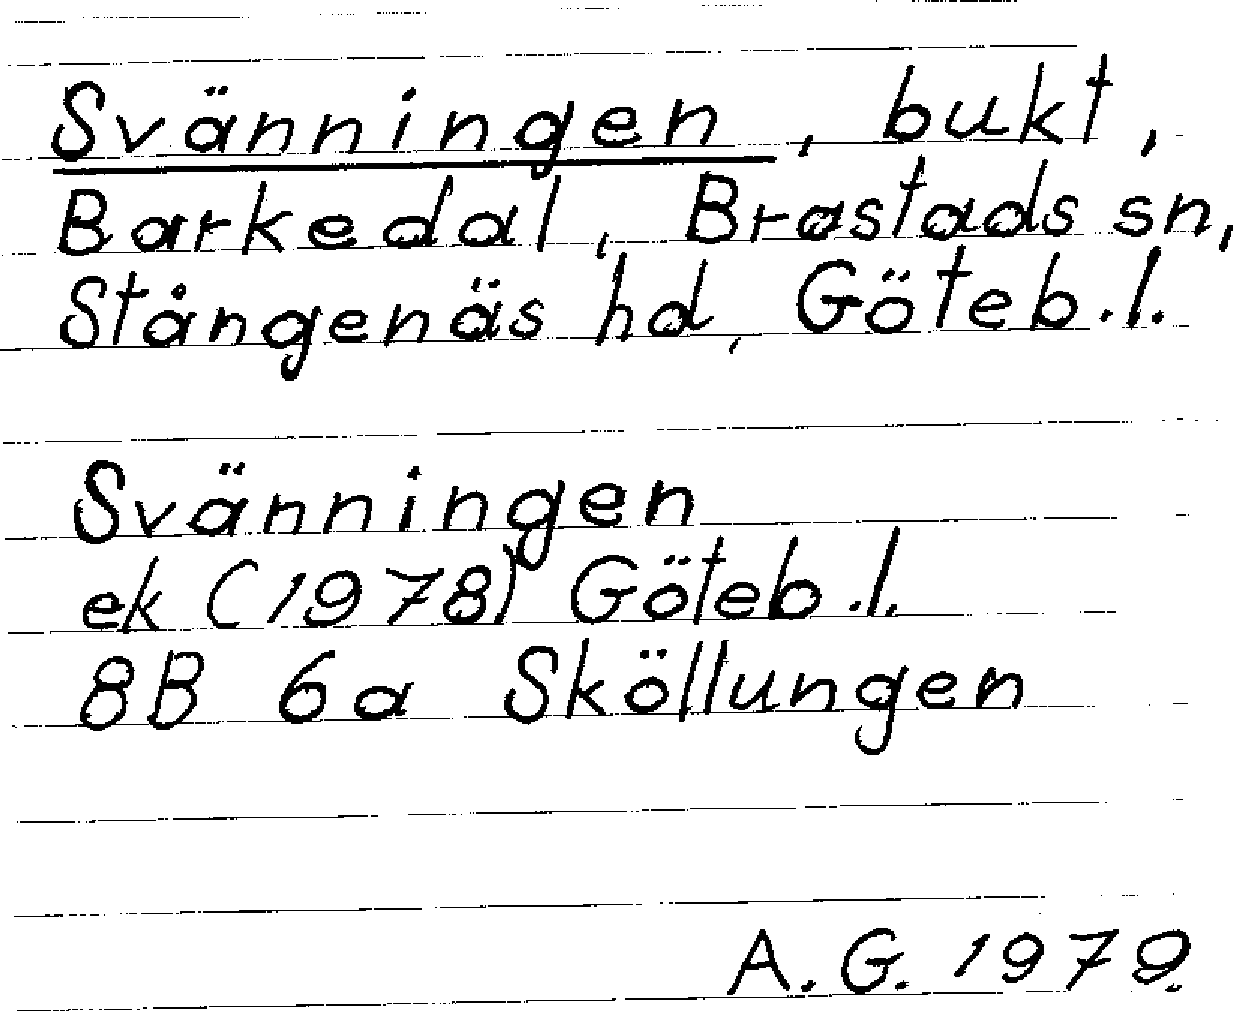 Svänningen, bukt,
Barkedal, Brastads sn,
Stångenäs hd, Göteb.l.
Svänningen
ek (1978) Göteb.l.
8B 6a Sköllungen
A.G. 1979.